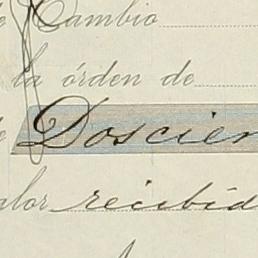 e Cambio
la órden de
e Doscien
alor recibid